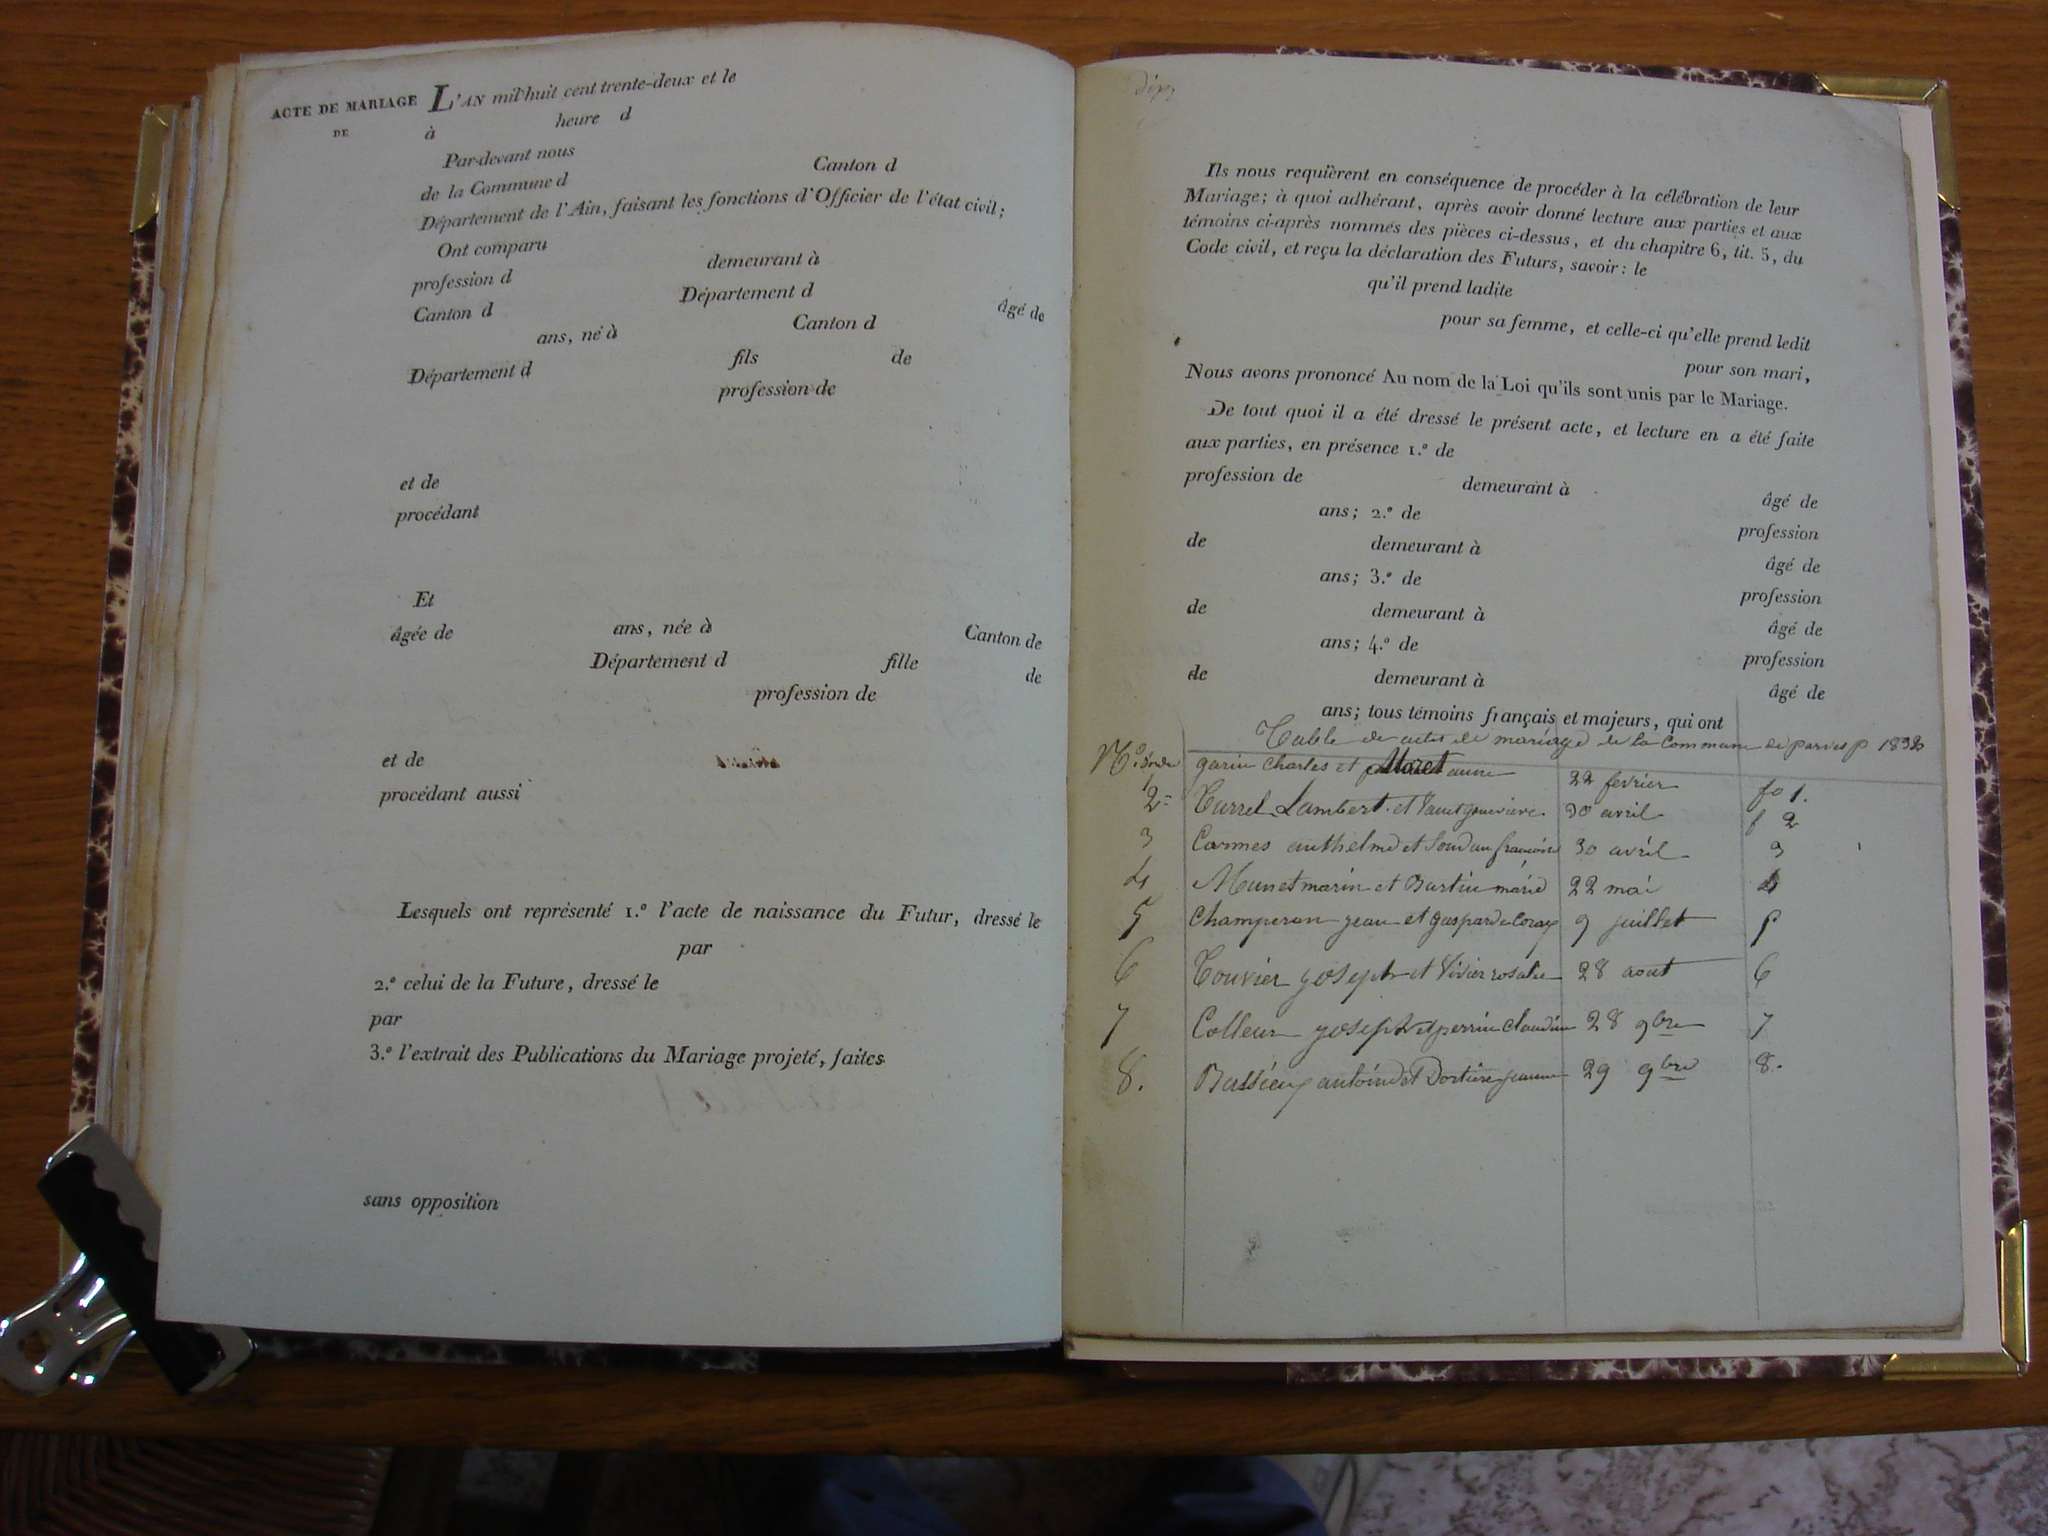 ACTE DE MARIAGE L'AN mil huit cent trente-deux et le
DE à heure d
Par-devant nous
de la Commune d Canton d
Département de l'Ain, faisant les fonctions d'Officier de l'état civil;
Ont comparu
profession d demeurant à
Canton d Département d âgé de
ans, né à Canton d
Département d fils de
profession de
et de
procédant
Et
âgée de ans, née à Canton de
Département d fille de
profession de
et de
procédant aussi
Lesquels ont représenté 1.º l'acte de naissance du Futur, dressé le
par
2.º celui de la Future, dressé le
par
3.º l'extrait des Publications du Mariage projeté, faites
sans opposition
Ils nous requièrent en conséquence de procéder à la célébration de leur
Mariage; à quoi adhérant, après avoir donné lecture aux parties et aux
témoins ci-après nommés des pièces ci-dessus, et du chapitre 6, tit. 5, du
Code civil, et reçu la déclaration des Futurs, savoir: le
qu'il prend ladite
pour sa femme, et celle-ci qu'elle prend ledit
pour son mari,
Nous avons prononcé Au nom de la Loi qu'ils sont unis par le Mariage.
De tout quoi il a été dressé le présent acte, et lecture en a été faite
aux parties, en présence 1.º de
profession de demeurant à âgé de
ans; 2.º de profession
de demeurant à âgé de
ans; 3.º de profession
de demeurant à âgé de
ans; 4.º de profession
de demeurant à âgé de
ans; tous témoins français et majeurs, qui ont
Table de actes de mariage de la Commune de parves 1832
garin Charles et Moret 22 fevrier fo 1.
2 Turrel Lambert et genevieve 30 avril f 2
3 Carmes anthelme et françoise 30 avril 3
4 Munet marin et marie 22 mai 4
5 Champeron jean et gasparde 9 juillet 5
6 Touvier joseph et Vivier rosalie 28 aout 6
7 Colleur joseph et perrin Claudine 28 9bre 7
8. antoine et jeanne 29 9bre 8.